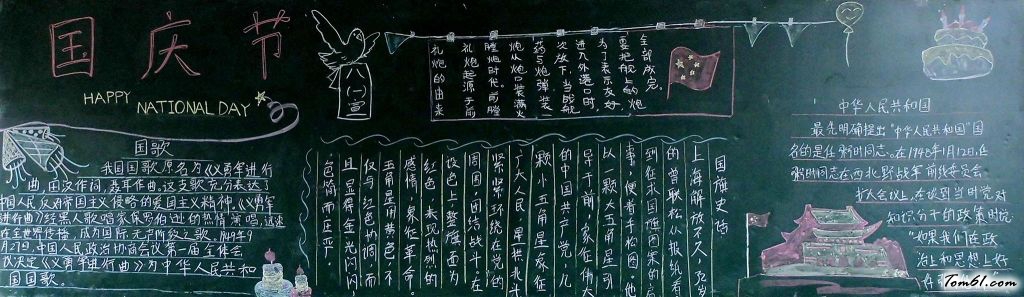 国庆节
HAPPY
NATIONAL DAY
国歌
我国国歌原名为《义勇军进行
曲》田汉作词,聂耳作曲。这支歌充分表达了
中国人民反对帝国主义侵略的爱国主义精神。《义勇军
进行曲》经黑人歌唱家保罗伯逊的热情演唱,迅速
在全世界传播,成为国际无产阶级之歌。1949年9
月27日,中国人民政治协商会议第一届全体会
议决定《义勇军进行曲》为中华人民共和
国国歌。
八一宣
全部成完,
要把舰上的炮
为了表示友好,
进入外港口时,
次放下,当战舰
药与炮弹装一
炮从炮口装满火
膛炮时代,前膛
礼炮起源于前
礼炮的由来
国旗史话
上海解放不久,
的曾联松从报纸看
到征求国旗图案的启
事,便着手构图,他
以一颗大五角星
中国共产党,
颗小五角星象征
广大人民,星拱北斗
紧紧环绕在党的
周围团结战斗。在
设色上,整旗面为
红色,表现热烈的
感情,象征革命。
五角星用黄色,不
仅与红色协调,而
且显得金光闪闪,
色简而庄严。
中华人民共和国
最先明确提出“中华人民共和国”国
名的是任弼时同志。在1948年1月12日,任
弼时同志在西北野战军前线委员会
扩大会议上,在谈到当时党对
知识分子的政策时说:
“如果我们在政
治上和思想上好
Tom61.com